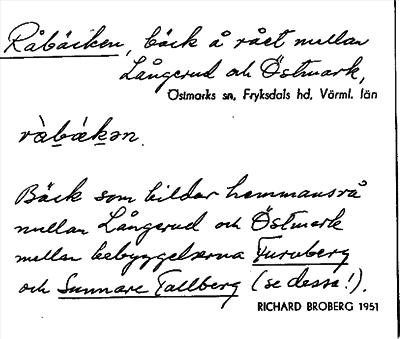 Råbäcken, bäck å rået mellan
Långerud och Östmark,
Östmarks sn, Fryksdals hd, Värml. län
ràbäkən.
Bäck som bildar hemmansrå
mellan Långerud och Östmark
mellan bebyggelserna Furuberg
och Sunnare Tallberg (se dessa!).
RICHARD BROBERG 1951